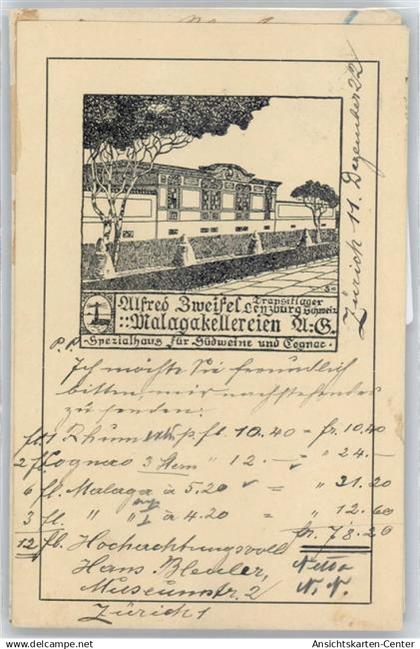 Zürich 11. Dezember 22
Alfred Zweifel Transitlager Lenzburg Schweiz
::Malagakellereien A:G.
·Spezialhaus für Südweine und Cognac·
P.P.
Ich möchte Sie freundlich
bitten, mir nachstehendes
zu senden:
1 Rhum p. fl. 10.40 = fr. 10.40
2 fl. Cognac 3 Stern " 12.- = " 24.-
6 fl. Malaga à 5.20 = " 31.20
3 fl. " " à 4.20 = " 12.60
12 fl. Hochachtungsvoll fr. 78.20
Hans Bleuler, Netto
Museumstr. 2 N.N.
Zürich 1
Ansichtskarten-Center
www.delcampe.net